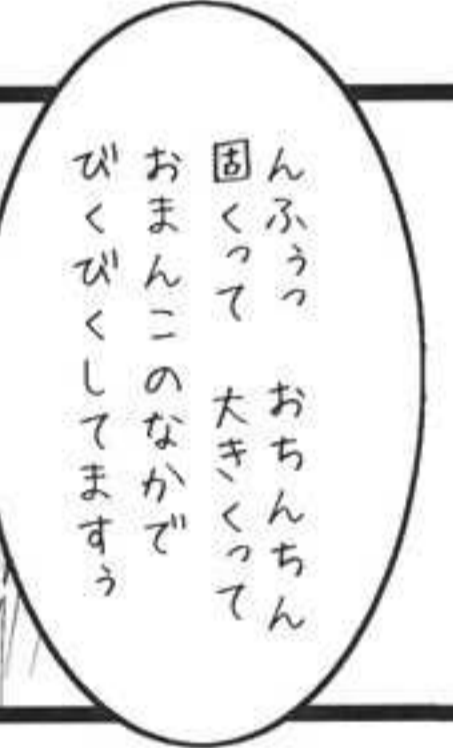 んふぅっ　おちんちん
固くって　大きくって
おまんこのなかで
びくびくしてますぅ